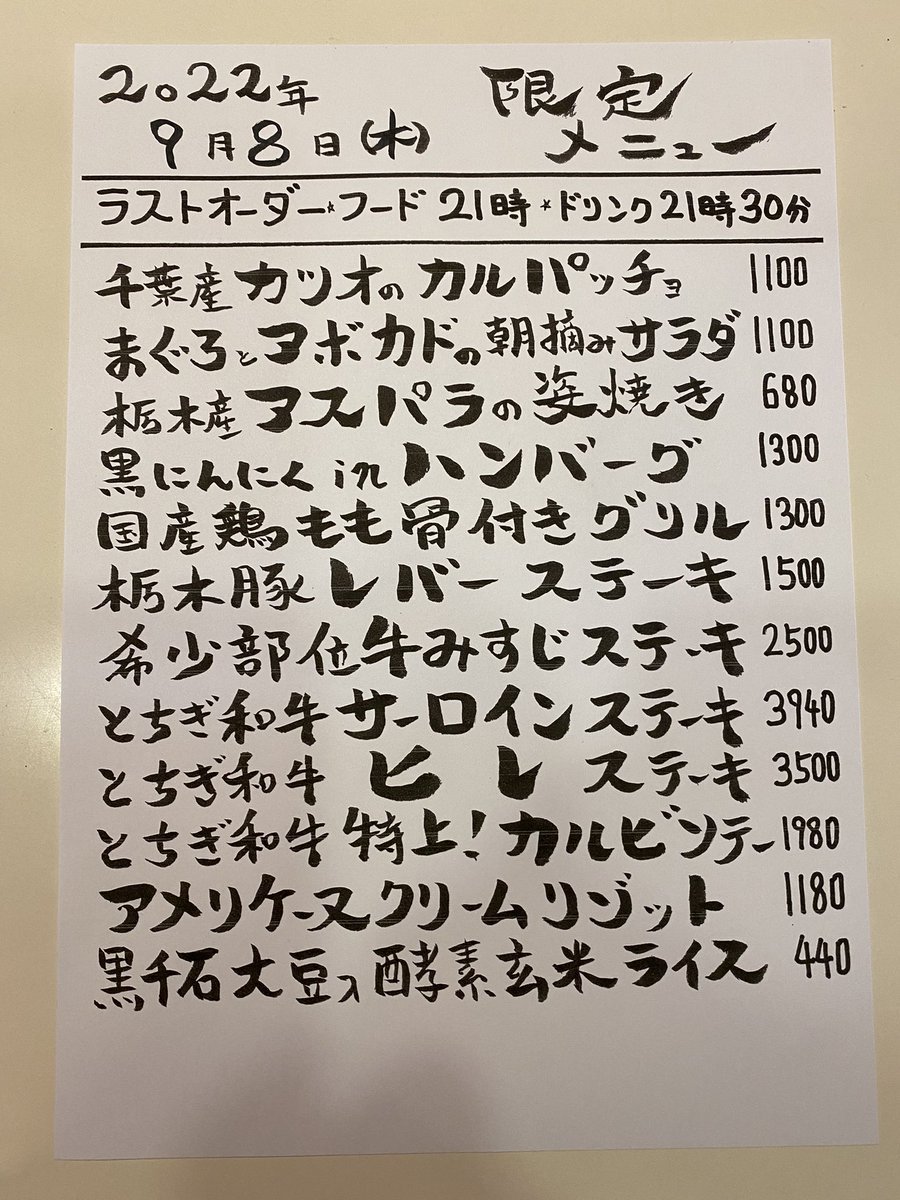 2022年 限定
9月8日(木) メニュー
ラストオーダー*フード 21時*ドリンク21時30分
千葉産カツオのカルパッチョ 1100
まぐろとアボカドの朝摘みサラダ 1100
栃木産アスパラの姿焼き 680
黒にんにくinハンバーグ 1300
国産鶏もも骨付きグリル 1300
栃木豚レバーステーキ 1500
希少部位牛みすじステーキ 2500
とちぎ和牛サーロインステーキ 3940
とちぎ和牛ヒレステーキ 3500
とちぎ和牛特上!カルビソテー 1980
アメリケーヌクリームリゾット 1180
黒千石大豆入酵素玄米ライス 440